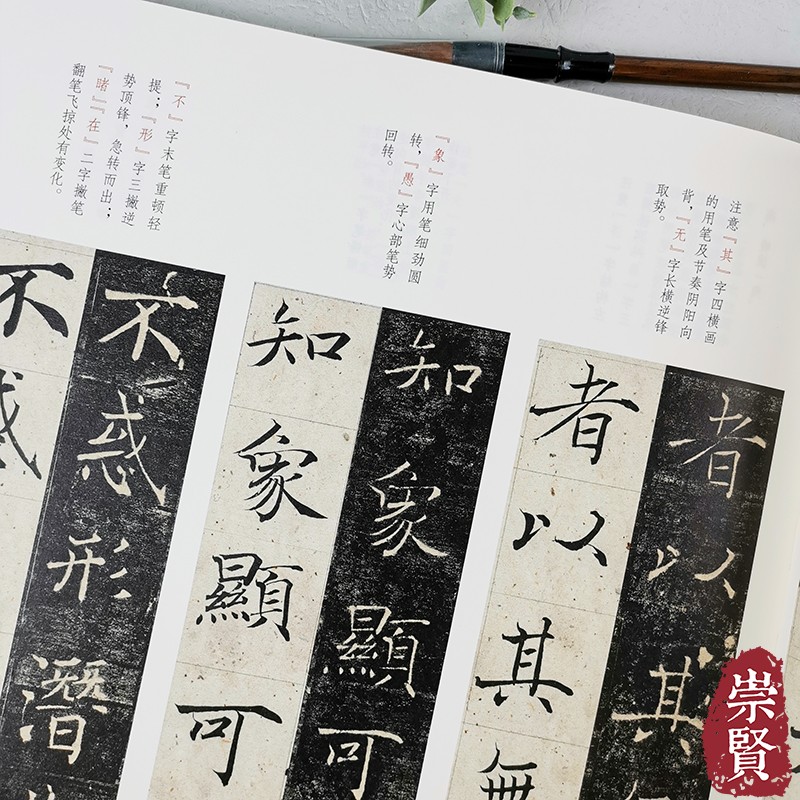 注意『其』字四横画
的用笔及节奏阴阳向
背,『无』字长横逆锋
取势。
者以其
者以其無
『象』字用笔细劲圆
转,『愚』字心部笔势
回转。
知象顯可
知象顯可
『不』字末笔重顿轻
提;『形』字三撇逆
势顶锋,急转而出;
『睹』『在』二字撇笔
翻笔飞掠处有变化。
不惑形潛
不惑
崇賢